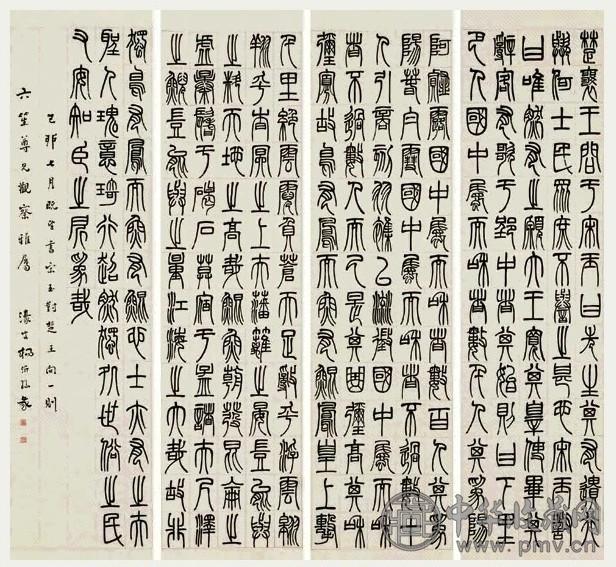 楚襄王問于宋玉曰先生其有遺行
與何士民眾庶不譽之甚也宋玉對
曰唯然有之願大王寬其辠使畢其
辭客有歌于郢中者其始則曰下里
巴人國中屬而和者數千人其為陽
阿薤露國中屬而和者數百人其為
陽春白雪國中屬而和者不過數十
人引商刻羽雜以流徵國中屬而和
者不過數人而已是其曲彌高其和
彌寡故鳥有鳳而魚有鯤鳳皇上擊
千里絕雲霓負蒼天足亂乎浮雲翱
翔乎杳冥之上夫藩籬之鷃豈能與
之料天地之高哉鯤魚朝發昆侖之
虛暴鬐于碣石莫宿于孟諸夫尺澤
之鯢豈能與之量江海之大哉故非
獨鳥有鳳而魚有鯤也士亦有之夫
聖人瑰意琦行超然獨處世俗之民
又安知臣之所為哉
乙卯七月既望書宋玉對楚王問一則
六笙尊兄觀察雅屬 濠叟楊沂孫篆
中华收藏网
www.pmv.cn